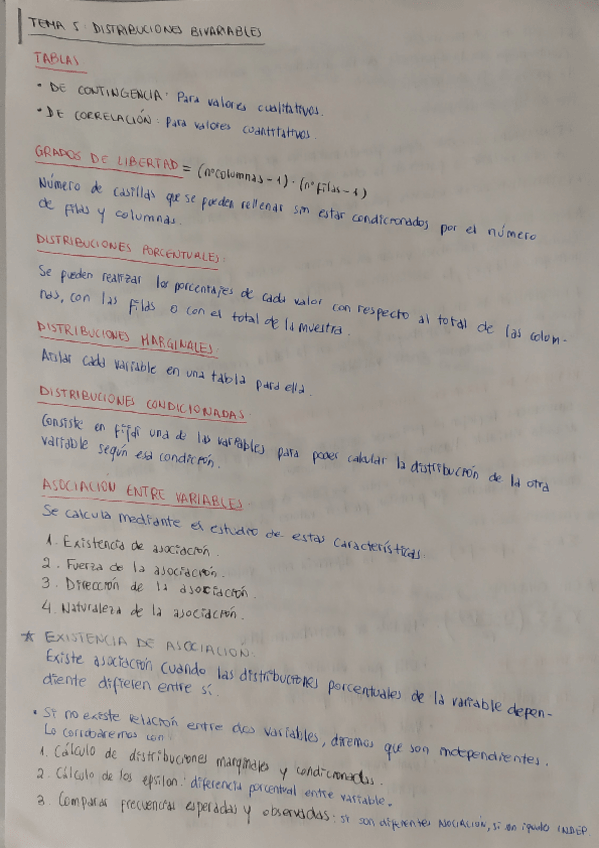 TEMA 5: DISTRIBUCIONES BIVARIABLES
TABLAS
• DE CONTINGENCIA: Para valores cualitativos.
• DE CORRELACIÓN: para valores cuantitativos.
GRADOS DE LIBERTAD = (nº columnas - 1) · (nº filas - 1)
Número de casillas que se pueden rellenar sin estar condicionados por el número
de filas y columnas.
DISTRIBUCIONES PORCENTUALES:
Se pueden realizar los porcentajes de cada valor con respecto al total de las colum-
nas, con las filas o con el total de la muestra.
DISTRIBUCIONES MARGINALES:
Aislar cada variable en una tabla para ella.
DISTRIBUCIONES CONDICIONADAS:
Consiste en fijar una de las variables para poder calcular la distribución de la otra
variable según esa condición.
ASOCIACIÓN ENTRE VARIABLES:
Se calcula mediante el estudio de estas características.
1. Existencia de asociación.
2. Fuerza de la asociación.
3. Dirección de la asociación.
4. Naturaleza de la asociación.
★ EXISTENCIA DE ASOCIACIÓN:
Existe asociación cuando las distribuciones porcentuales de la variable depen-
diente difieren entre sí.
• Si no existe relación entre dos variables, diremos que son independientes.
Lo corroboraremos con:
1. Cálculo de distribuciones marginales y condicionadas.
2. Cálculo de los epsilon: diferencia porcentual entre variable.
3. Comparar frecuencias esperadas y observadas: si son diferentes ASOCIACIÓN, si son iguales INDEP